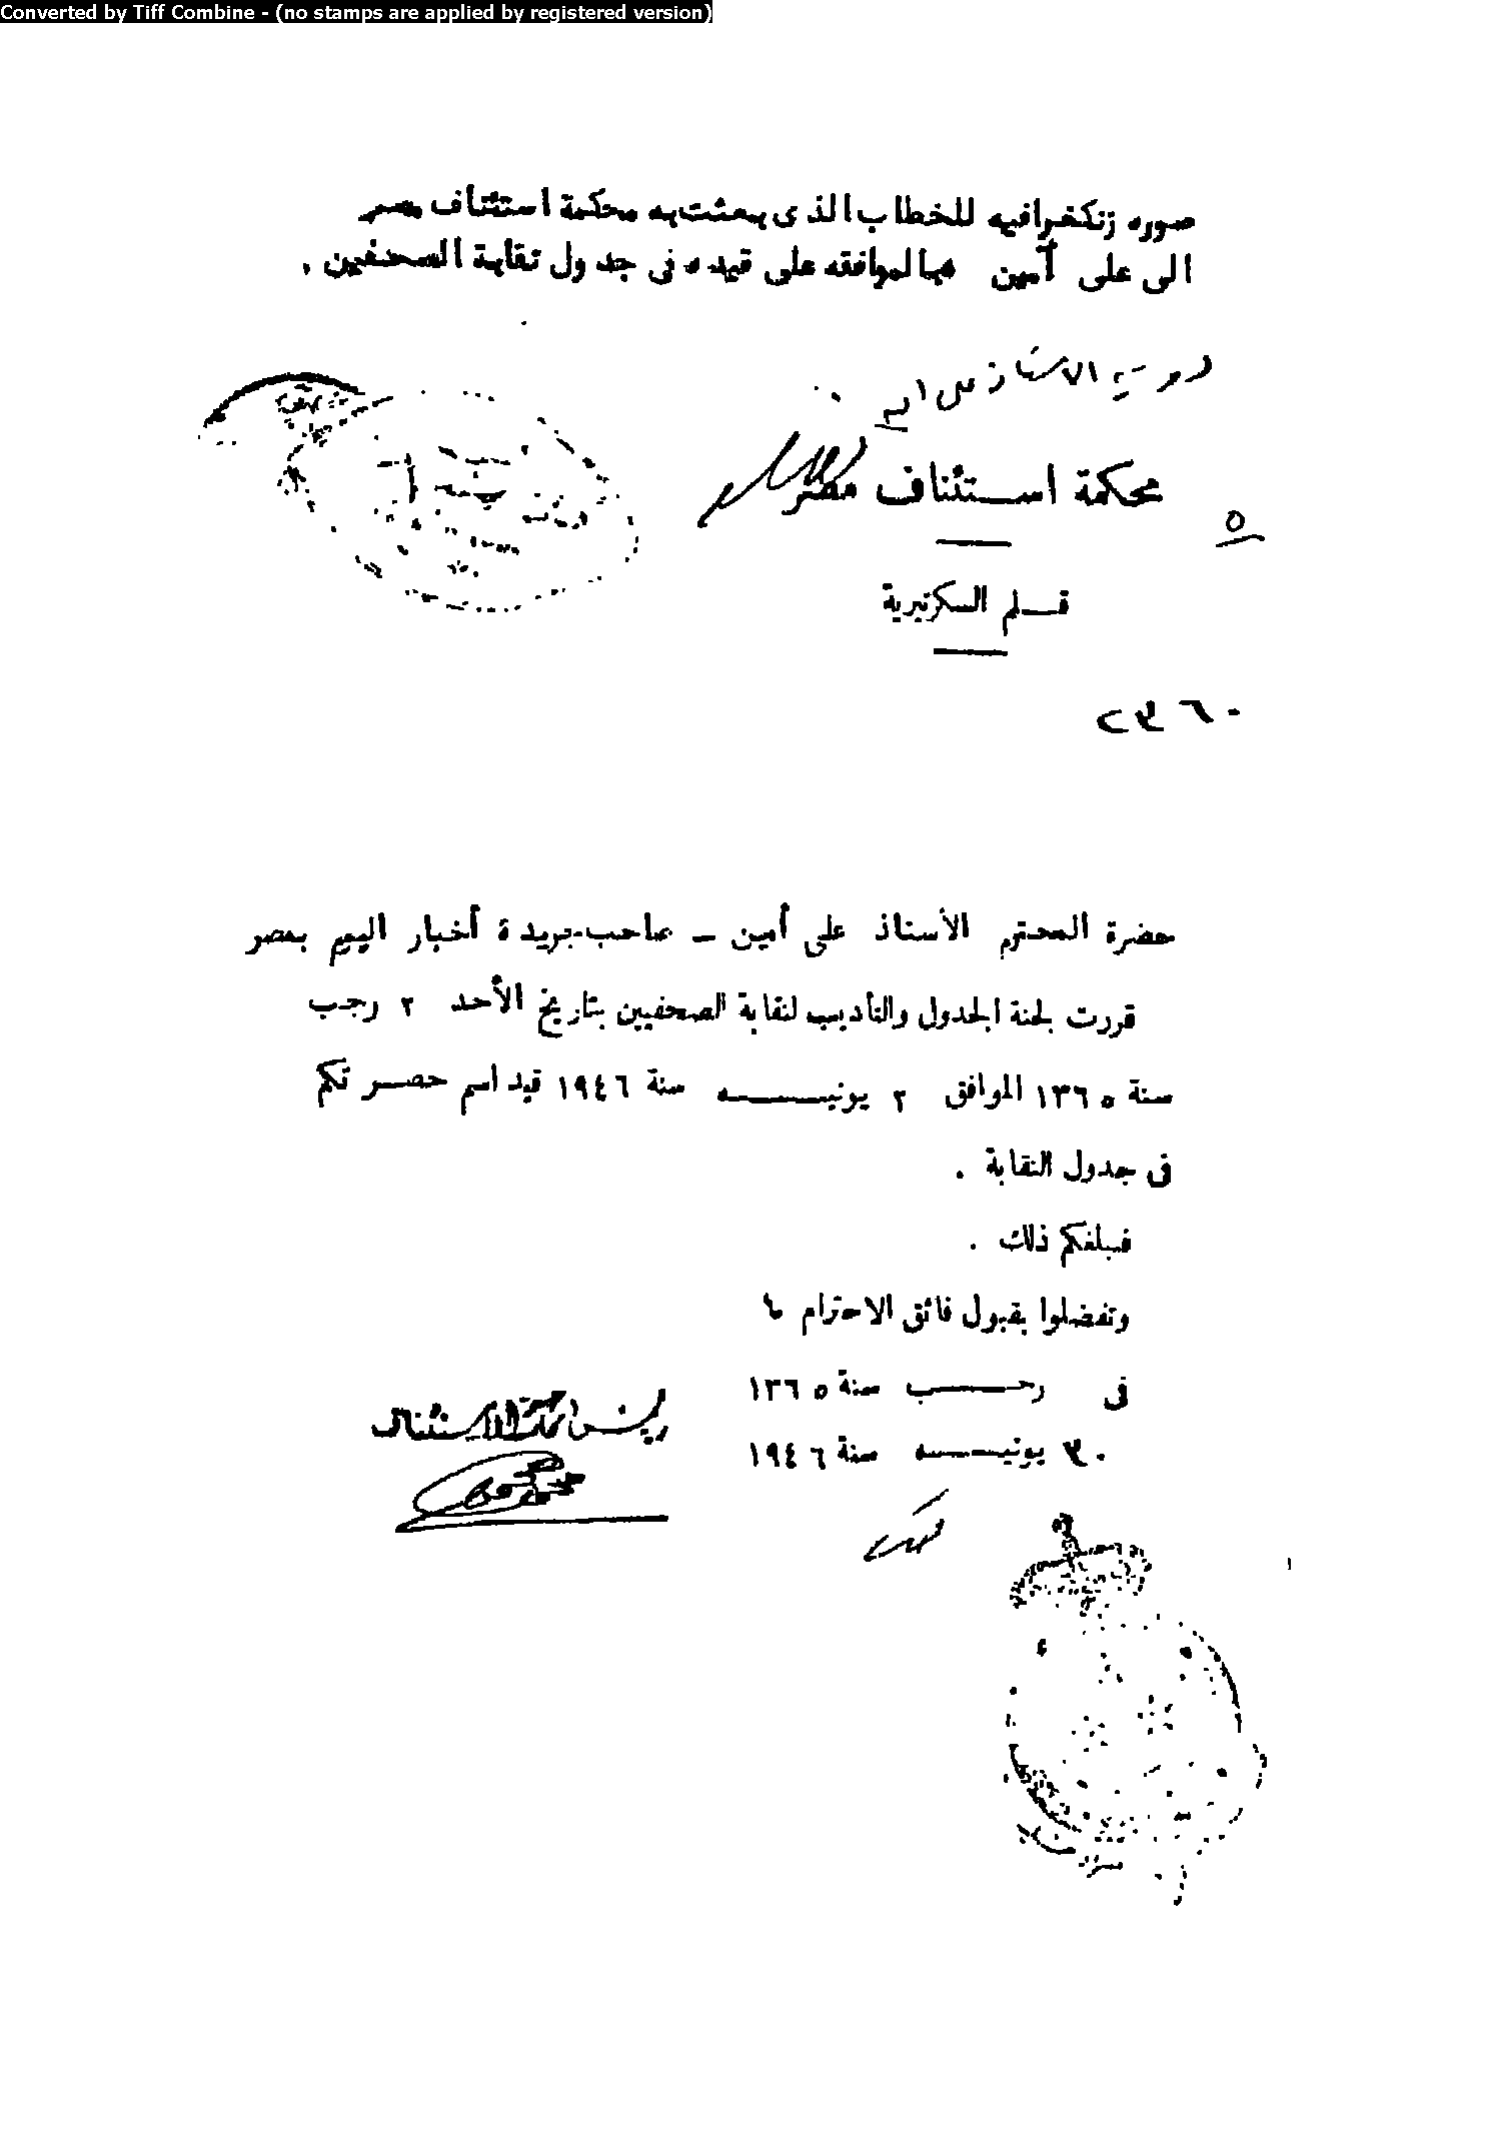 Converted by Tiff Combine - (no stamps are applied by registered version)
صوره زنكغرافيه للخطاب الذى بعثت به محكمة استئناف مصر
الى على أمين بالموافقه على قيده فى جدول نقابة الصحفيين .
دوسيه الاستاذ على امين
محكمة استئناف مصر
٥
قلم السكرتيرية
٢٣٦٠
حضرة المحترم الأستاذ على أمين - صاحب جريدة أخبار اليوم بمصر
قررت لجنة الجدول والتأديب لنقابة الصحفيين بتاريخ الأحد ٢ رجب
سنة ١٣٦٥ الموافق ٢ يونيـــه سنة ١٩٤٦ قيد اسم حضرتكم
فى جدول النقابة .
فنبلغكم ذلك .
وتفضلوا بقبول فائق الاحترام
فى رجـــب سنة ١٣٦٥
٣٠ يونيـــه سنة ١٩٤٦
رئيس محكمة الاستئناف